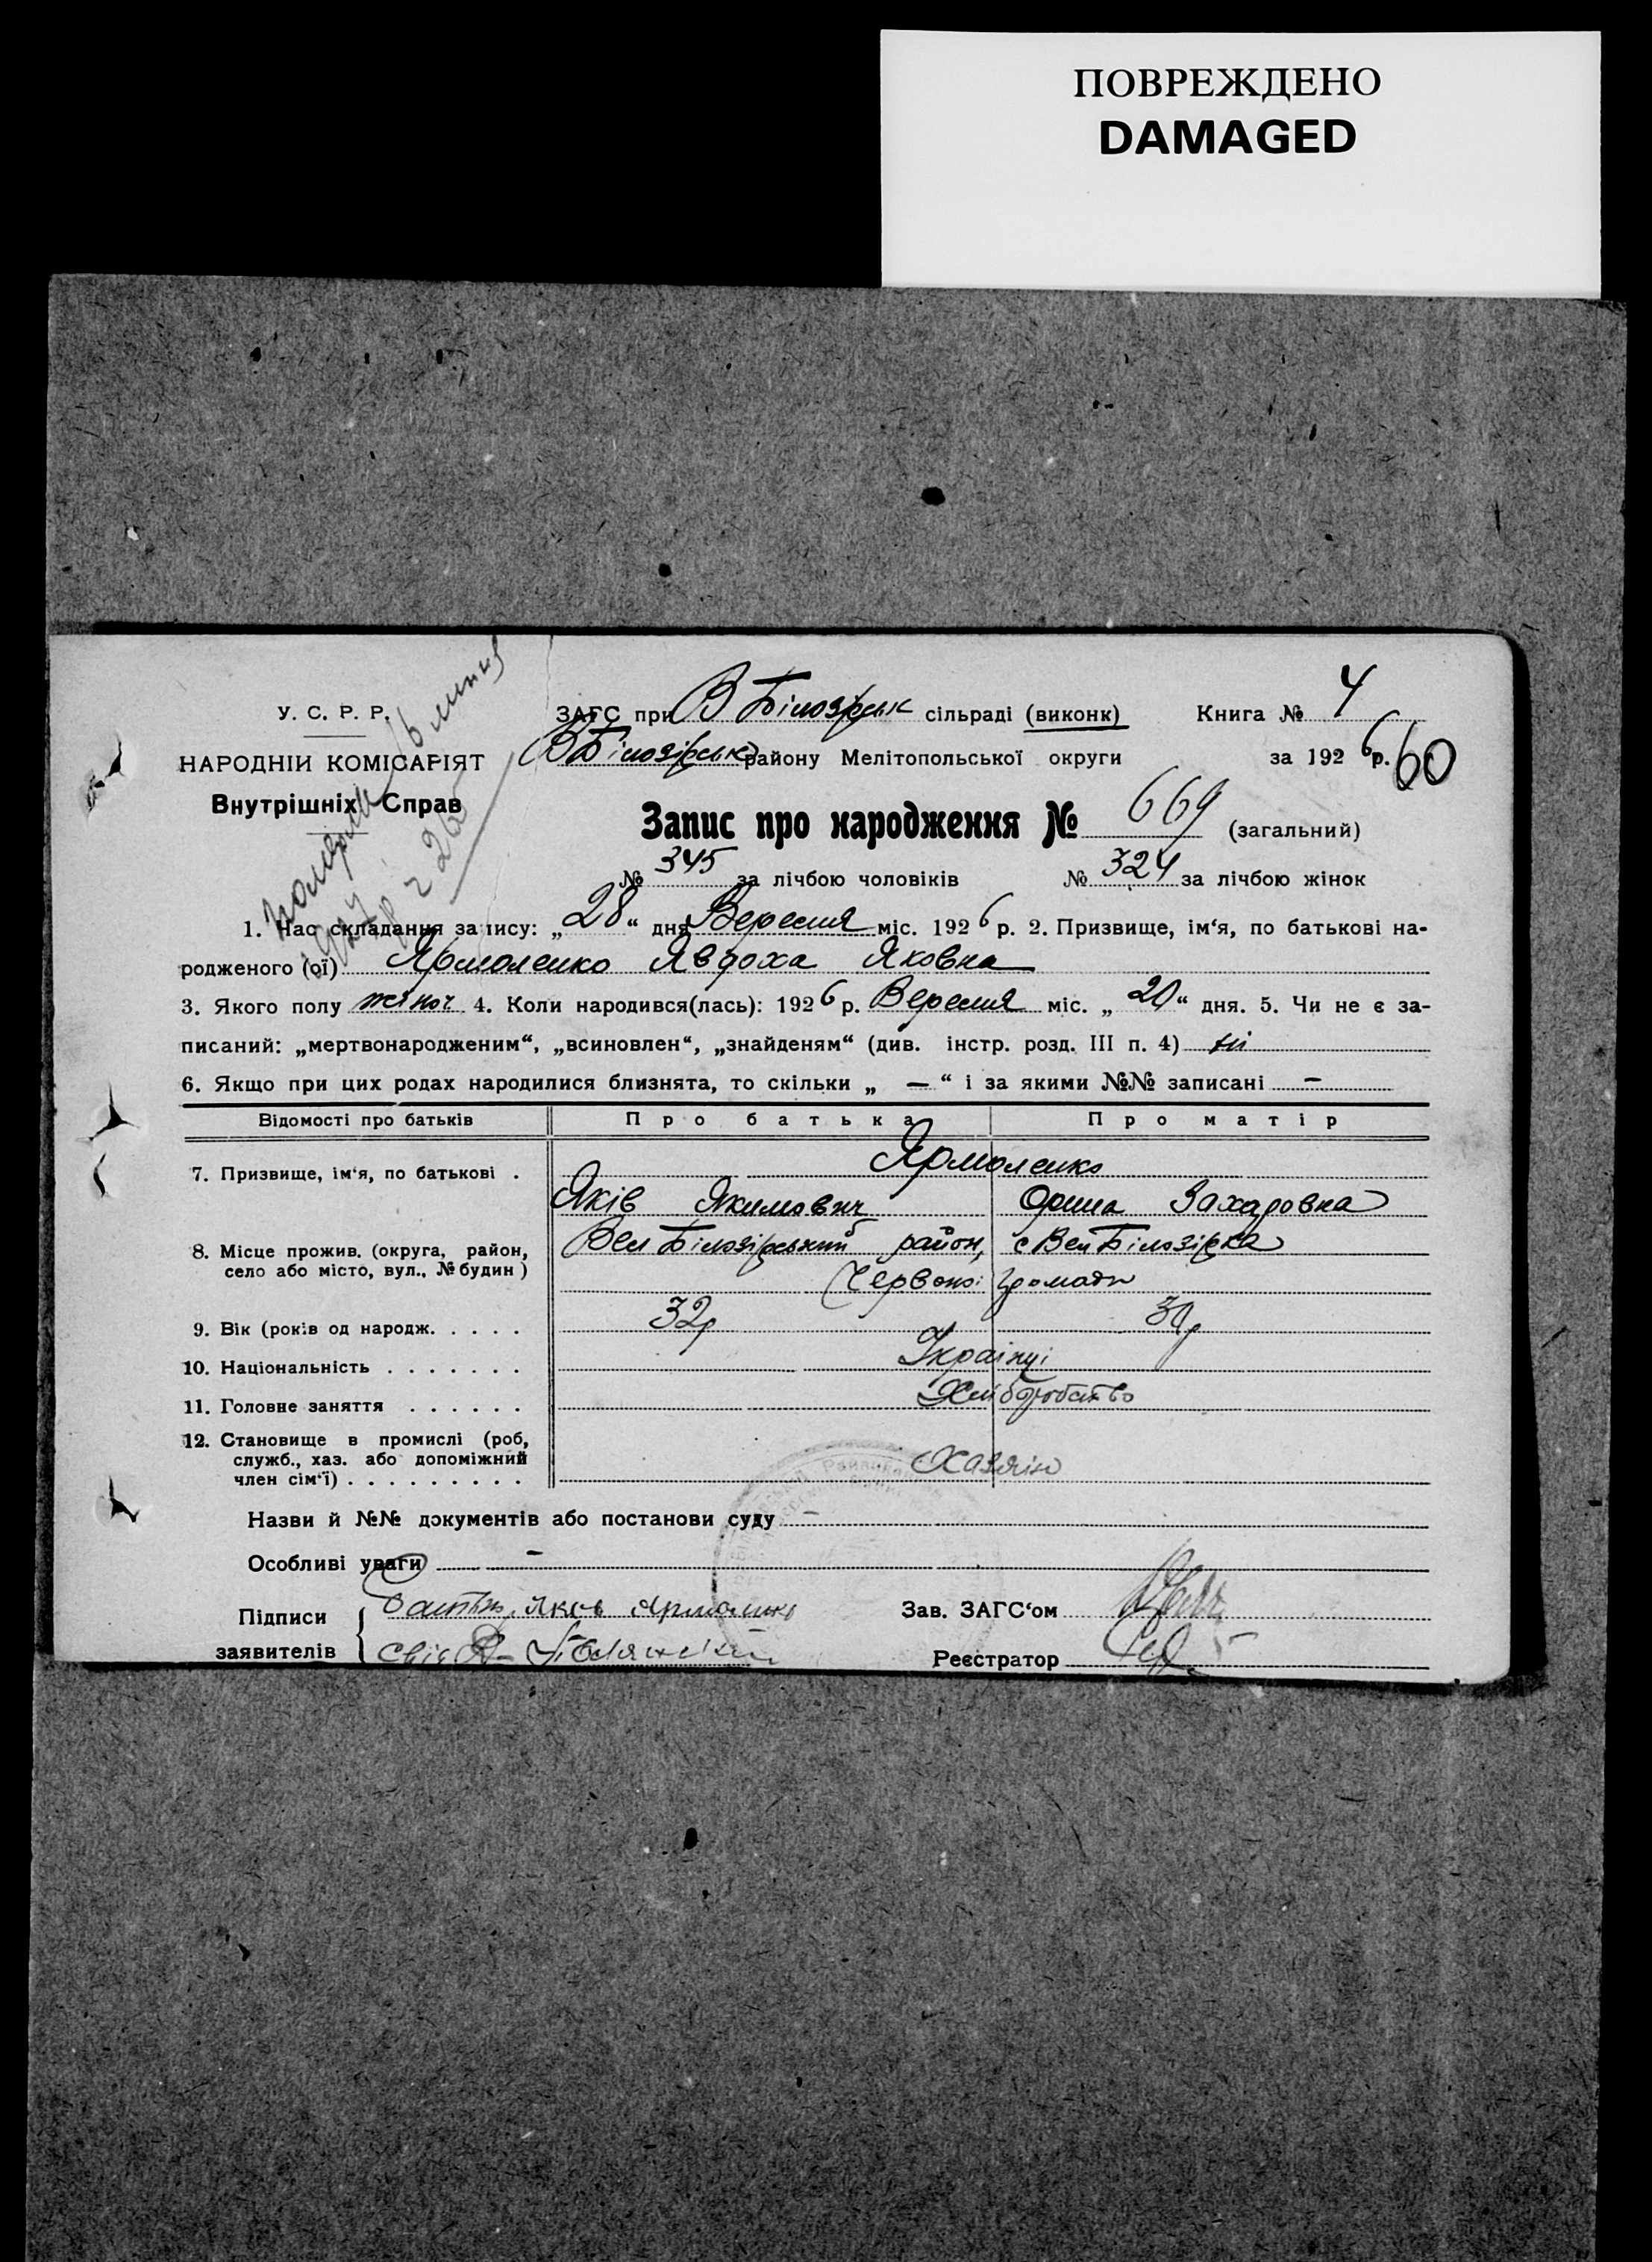 ПОВРЕЖДЕНО
DAMAGED
У. С. Р. Р.
НАРОДНІЙ КОМІСАРІЯТ
Внутрішніх Справ
ЗАГС при В Білозірськ сільраді (виконк) Книга № 4
В Білозірськ району Мелітопольської округи за 1926 р. 60
Запис про народження № 669 (загальний)
№ 345 за лічбою чоловіків № 324 за лічбою жінок
1. Час складання запису: „28“ дня Вересня міс. 1926 р. 2. Призвище, ім‘я, по батькові на-
родженого (ої) Ярмоленко Явдоха Яковна
3. Якого полу жіноч 4. Коли народився(лась): 1926 р. Вересня міс. „20“ дня. 5. Чи не є за-
писаний: „мертвонародженим“, „всиновлен“, „знайденям“ (див. інстр. розд. III п. 4) ні
6. Якщо при цих родах народилися близнята, то скільки „ — “ і за якими №№ записані –
Відомості про батьків Про батька Про матір
7. Призвище, ім‘я, по батькові . Ярмоленко
Яків Якимович Орина Захаровна
8. Місце прожив. (округа, район, Вел Білозірський район, с Вел Білозірка
село або місто, вул., № будин) Червоної громади
9. Вік (років од народж. . . . . 32р 30р
10. Національність . . . . . . . Українці
11. Головне заняття . . . . . . Хліборобство
12. Становище в промислі (роб,
служб., хаз. або допоміжний Хазяїн
член сім‘ї) . . . . . . . . .
Назви й №№ документів або постанови суду –
Особливі уваги –
Підписи заявителів { Батько, Яков Ярмоленко
Зав. ЗАГС‘ом
Реєстратор